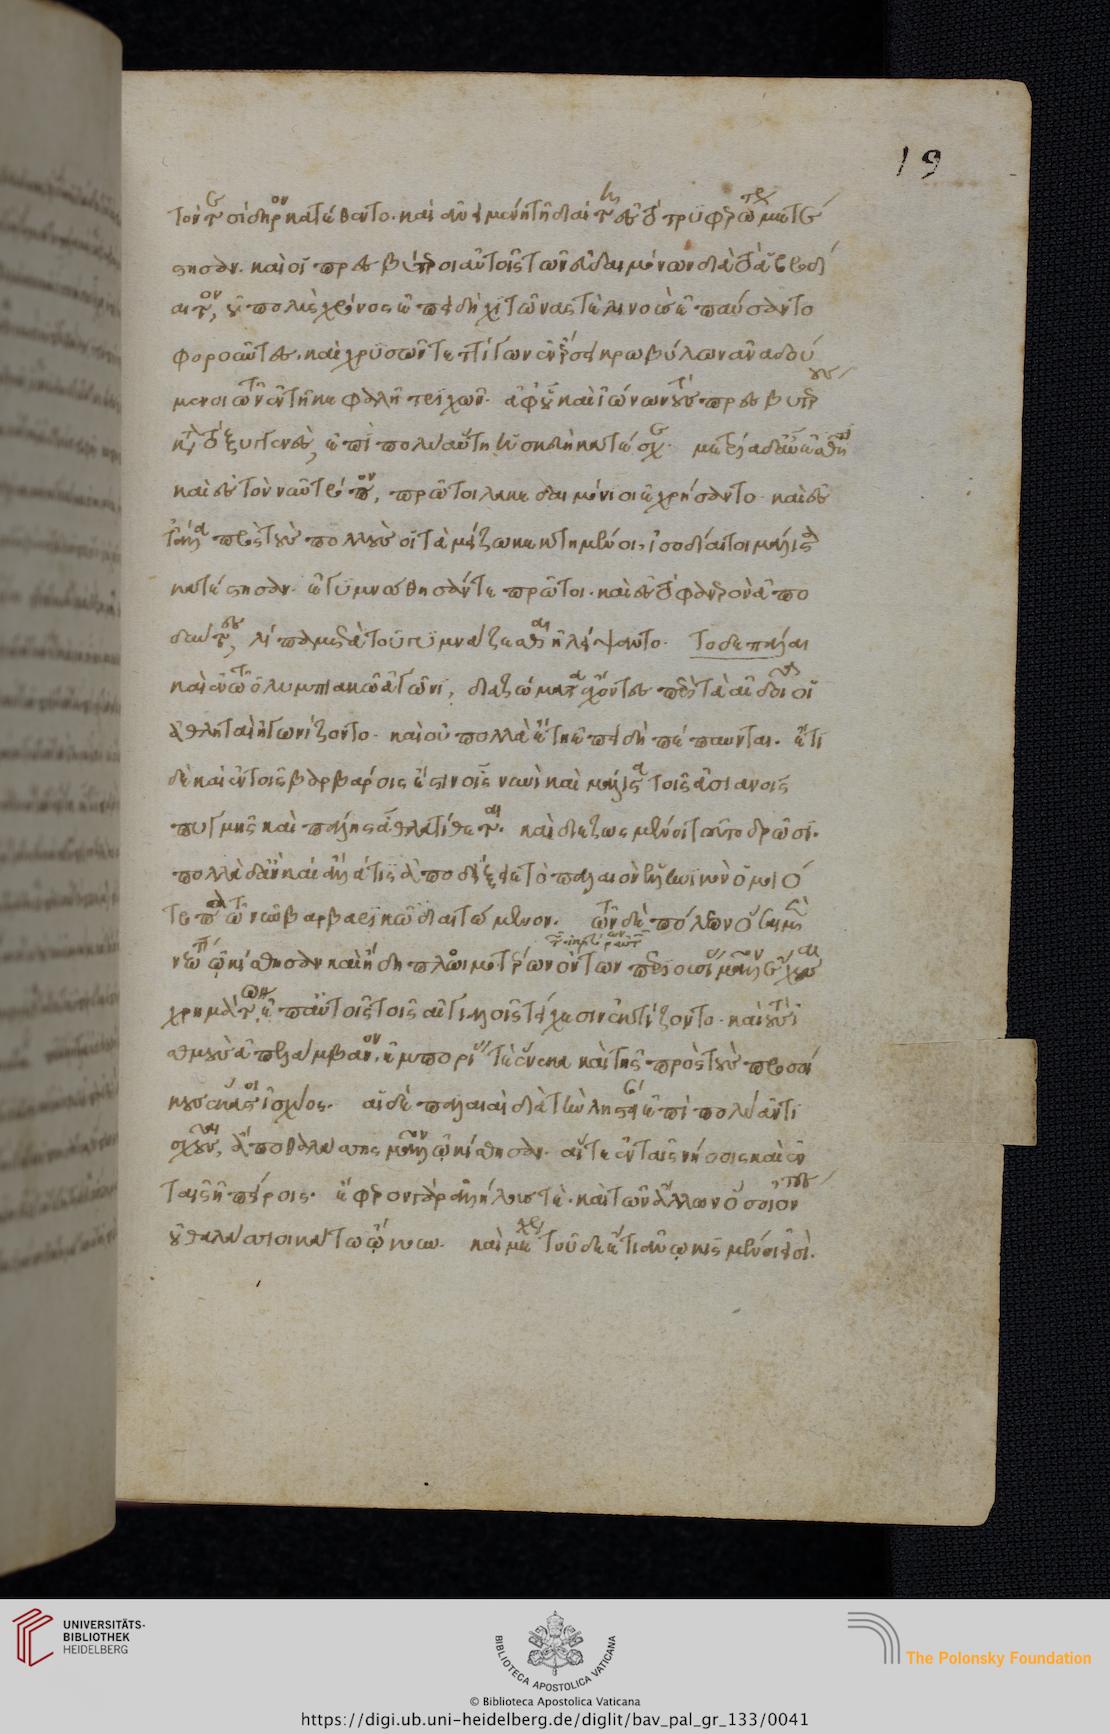 19
τόν τε σίδηρον κατέθεντο. καὶ ἀνειμένῃ τῇ διαίτῃ ἐς τὸ τρυφερώτερον μετέ
στησαν. καὶ οἱ πρεσβύτεροι αὐτοῖς τῶν εὐδαιμόνων διὰ τὸ ἁβροδί
αιτον, οὐ πολὺς χρόνος ἐπειδὴ χιτῶνάς τε λινοῦς ἐπαύσαντο
φοροῦντες. καὶ χρυσῶν τεττίγων ἐνέρσει κρωβύλων ἀναδού
μενοι τῶν ἐν τῇ κεφαλῇ τριχῶν. ἀφ' οὗ καὶ ἰώνων τοὺς πρεσβυτέρους
κατὰ τὸ ξυγγενὲς, ἐπὶ πολὺ αὕτη ἡ σκευὴ κατέσχε. μετρίᾳ δ' αὖ ἐσθῆτι
καὶ ἐς τὸν νῦν τρόπον, πρῶτοι λακεδαιμόνιοι ἐχρήσαντο. καὶ ἐς
τἆλλα πρὸς τοὺς πολλοὺς οἱ τὰ μείζω κεκτημένοι, ἰσοδίαιτοι μάλιστα
κατέστησαν. ἐγυμνώθησάν τε πρῶτοι. καὶ ἐς τὸ φανερὸν ἀπο
δύντες, λίπα μετὰ τοῦ γυμνάζεσθαι ἠλείψαντο. Τὸ δὲ πάλαι
καὶ ἐν τῷ ὀλυμπιακῷ ἀγῶνι, διαζώματα ἔχοντες περὶ τὰ αἰδοῖα οἱ
ἀθληταὶ ἠγωνίζοντο. καὶ οὐ πολλὰ ἔτη ἐπειδὴ πέπαυνται. ἔτι
δὲ καὶ ἐν τοῖς βαρβάροις ἔστιν οἷς νῦν καὶ μάλιστα τοῖς ἀσιανοῖς
πυγμῆς καὶ πάλης ἆθλα τίθεται. καὶ διεζωσμένοι τοῦτο δρῶσι.
πολλὰ δ' ἂν καὶ ἄλλα τις ἀποδείξειε τὸ παλαιὸν ἑλληνικὸν ὁμοιό
τροπα τῷ νῦν βαρβαρικῷ διαιτώμενον. τῶν δὲ πόλεων ὅσαι μὲν
νεώταται ᾠκίσθησαν καὶ ἤδη πλωιμωτέρων ὄντων περιουσίας μᾶλλον ἔχουσαι
χρημάτων ἐπ' αὐτοῖς τοῖς αἰγιαλοῖς τείχεσιν ἐκτίζοντο. καὶ τοὺς ἰ
σθμοὺς ἀπελάμβανον, ἐμπορίας τε ἕνεκα καὶ τῆς πρὸς τοὺς προσοί
κους ἕκαστοι ἰσχύος. αἱ δὲ παλαιαὶ διὰ τὴν λῃστείαν ἐπὶ πολὺ ἀντι
σχοῦσαι, ἀπὸ θαλάσσης μᾶλλον ᾠκίσθησαν. αἵ τε ἐν ταῖς νήσοις καὶ ἐν
ταῖς ἠπείροις. ἔφερον γὰρ ἀλλήλους τὲ. καὶ τῶν ἄλλων ὅσοι ὄντες
οὐ θαλάσσιοι κάτω ᾤκουν. καὶ μέχρι τοῦδε ἔτι ἀνῳκισμένοι εἰσί.
UNIVERSITÄTS-
BIBLIOTHEK
HEIDELBERG
BIBLIOTECA APOSTOLICA VATICANA
The Polonsky Foundation
© Biblioteca Apostolica Vaticana
https://digi.ub.uni-heidelberg.de/diglit/bav_pal_gr_133/0041